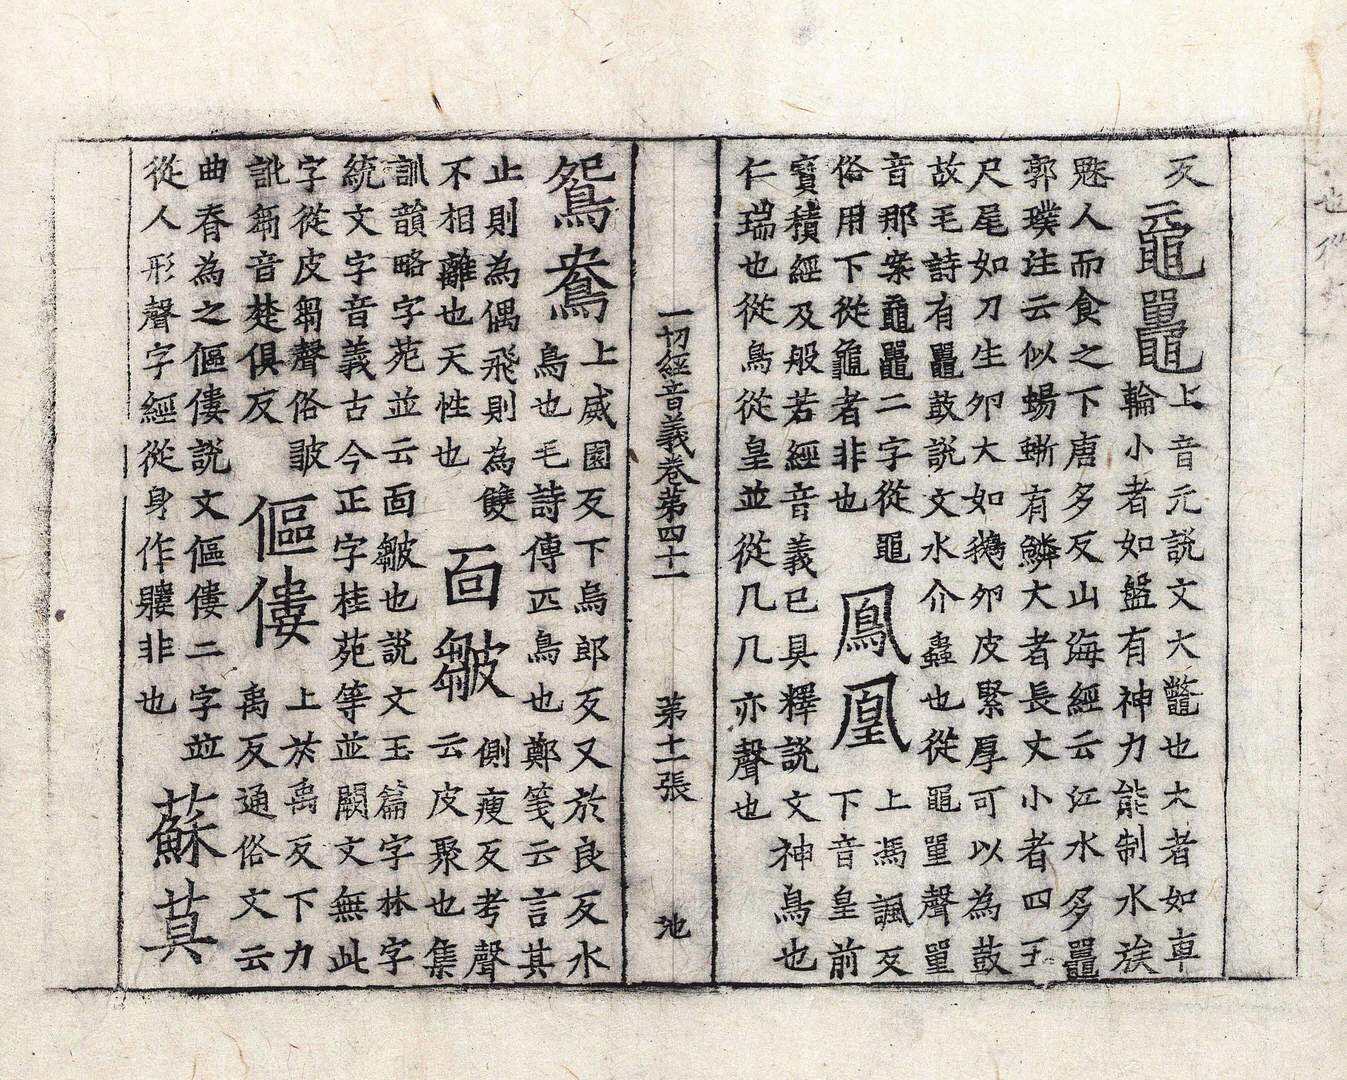 反黿鼉上音元說文大鼈也大者如車
輪小者如盤有神力能制水族
魅人而食之下唐多反山海經云江水多鼉
郭璞注云似蜴蜥有鱗大者長丈小者四五
尺尾如刀生卵大如鵝卵皮緊厚可以為鼓
故毛詩有鼉鼓說文水介蟲也從黽單聲單
音那案黿鼉二字從黽
俗用下從龜者非也
鳳凰上馮諷反
下音皇前
寶積經及般若經音義已具釋說文神鳥也
仁瑞也從鳥從皇並從几几亦聲也
一切經音義卷第四十一 第十一張 池
鴛鴦上威園反下烏郎反又於良反水
鳥也毛詩傳匹鳥也鄭箋云言其
止則為偶飛則為雙
不相離也天性也
面皺側瘦反考聲
云皮聚也集
訓韻略字苑並云面皺也說文玉篇字林字
統文字音義古今正字桂苑等並闕文無此
字從皮芻聲俗
訛芻音楚俱反
傴僂上於禹反下力
禹反通俗文云
曲脊為之傴僂說文傴僂二字並
從人形聲字經從身作軁非也
蘇莫